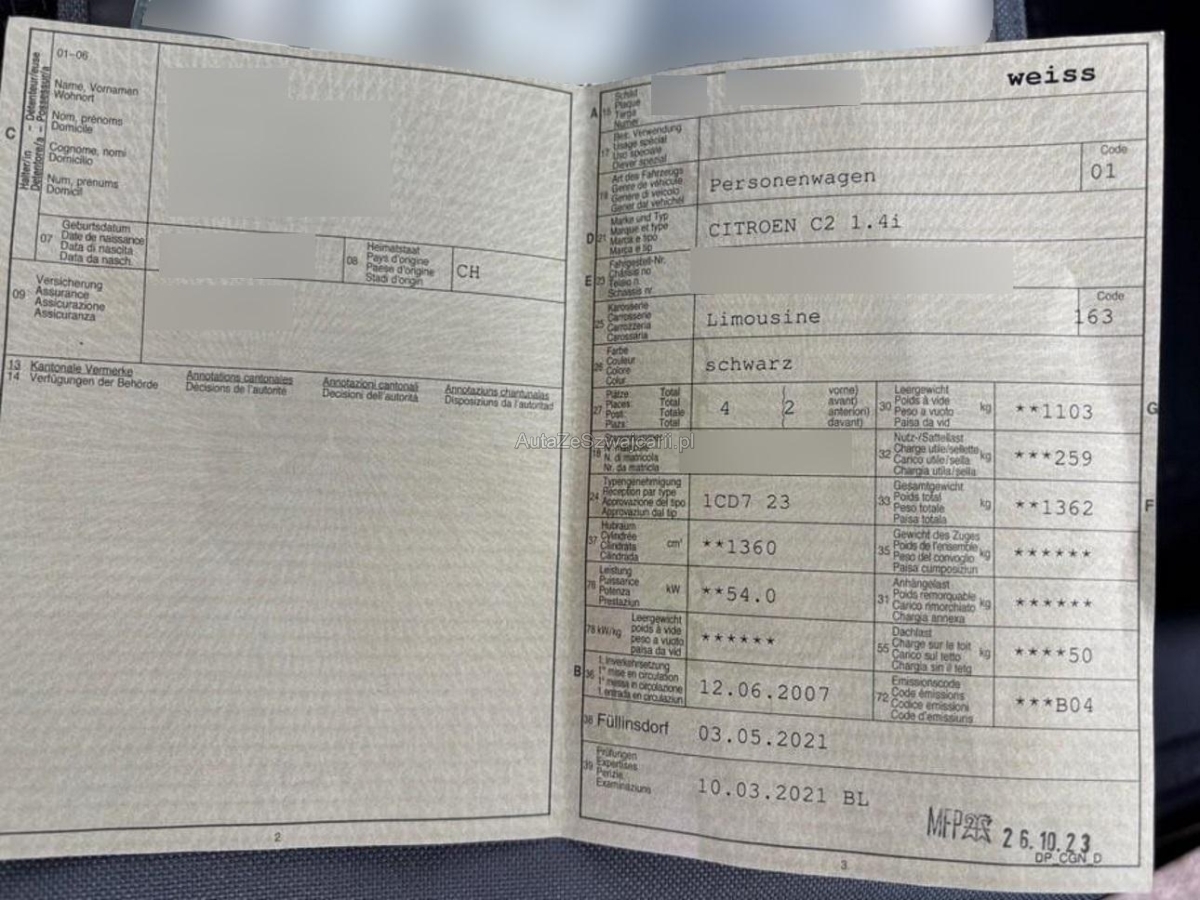 01-06
C
Halter/in - Détenteur/euse
Detentore/a - Possessur/a
Name, Vornamen
Wohnort
Nom, prénoms
Domicile
Cognome, nomi
Domicilio
Num, prenums
Domicil
07
Geburtsdatum
Date de naissance
Data di nascita
Data da nasch.
08
Heimatstaat
Pays d'origine
Paese d'origine
Stadi d'origin
CH
09
Versicherung
Assurance
Assicurazione
Assicuranza
13 Kantonale Vermerke
14 Verfügungen der Behörde
Annotations cantonales
Décisions de l'autorité
Annotazioni cantonali
Decisioni dell'autorità
Annotaziuns chantunalas
Disposiziuns da l'autoritad
2
weiss
A 15
Schild
Plaque
Targa
Numer
17
Bes. Verwendung
Usage spécial
Uso speciale
Diever spezial
19
Art des Fahrzeugs
Genre de véhicule
Genere di veicolo
Gener dal vehichel
Personenwagen
Code
01
D 21
Marke und Typ
Marque et type
Marca e tipo
Marca e tip
CITROEN C2 1.4i
E 23
Fahrgestell-Nr.
Châssis no
Telaio n.
Schassis nr.
25
Karosserie
Carrosserie
Carrozzeria
Carossaria
Limousine
Code
163
26
Farbe
Couleur
Colore
Colur
schwarz
27
Plätze: Total
Places: Total
Posti: Totale
Plazs: Total
4
(2
vorne)
avant)
anteriori)
davant)
30
Leergewicht
Poids à vide
Peso a vuoto
Paisa da vid
kg
**1103
G
18
N. di matricola
Nr. da matricla
32
Nutz-/Sattellast
Charge utile/sellette
Carico utile/sella
Chargia utila/sella
kg
***259
24
Typengenehmigung
Réception par type
Approvazione del tipo
Approvaziun dal tip
1CD7 23
33
Gesamtgewicht
Poids total
Peso totale
Paisa totala
kg
**1362
F
37
Hubraum
Cylindrée
Cilindrata
Cilindrada
cm³
**1360
35
Gewicht des Zuges
Poids de l'ensemble
Peso del convoglio
Paisa cumposiziun
kg
******
76
Leistung
Puissance
Potenza
Prestaziun
kW
**54.0
31
Anhängelast
Poids remorquable
Carico rimorchiato
Chargia annexa
kg
******
78 kW/kg
Leergewicht
poids à vide
peso a vuoto
paisa da vid
******
55
Dachlast
Charge sur le toit
Carico sul tetto
Chargia sin il tetg
kg
****50
B 36
1. Inverkehrsetzung
1re mise en circulation
1a messa in circolazione
1. entrada en circulaziun
12.06.2007
72
Emissionscode
Code émissions
Codice emissioni
Code d'emissiuns
***B04
38 Füllinsdorf
03.05.2021
39
Prüfungen
Expertises
Perizie
Examinaziuns
10.03.2021 BL
MFP
26.10.23
DP_CGN_D
3
AutaZeSzwajcarii.pl